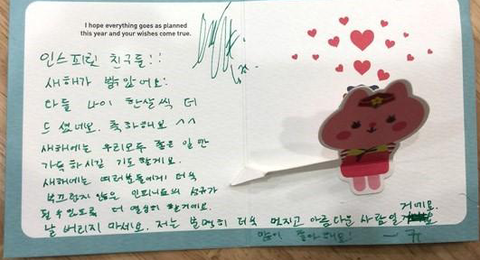 I hope everything goes as planned
this year and your wishes come true.
인스피릿 친구들!!
새해가 밝았어요!
다들 나이 한살씩 더
드셨네요. 축하해요 ^^
새해에는 우리모두 좋은 일만
가득하시길 기도할게요.
새해에는 여러분들에게 더욱
부끄럽지 않은 인피니트의 성규가
될 수 있도록 더 열심히 할게요.
날 버리지 마세요. 저는 분명히 더욱 멋지고 아름다운 사람일 거예요.
많이 좋아해요!